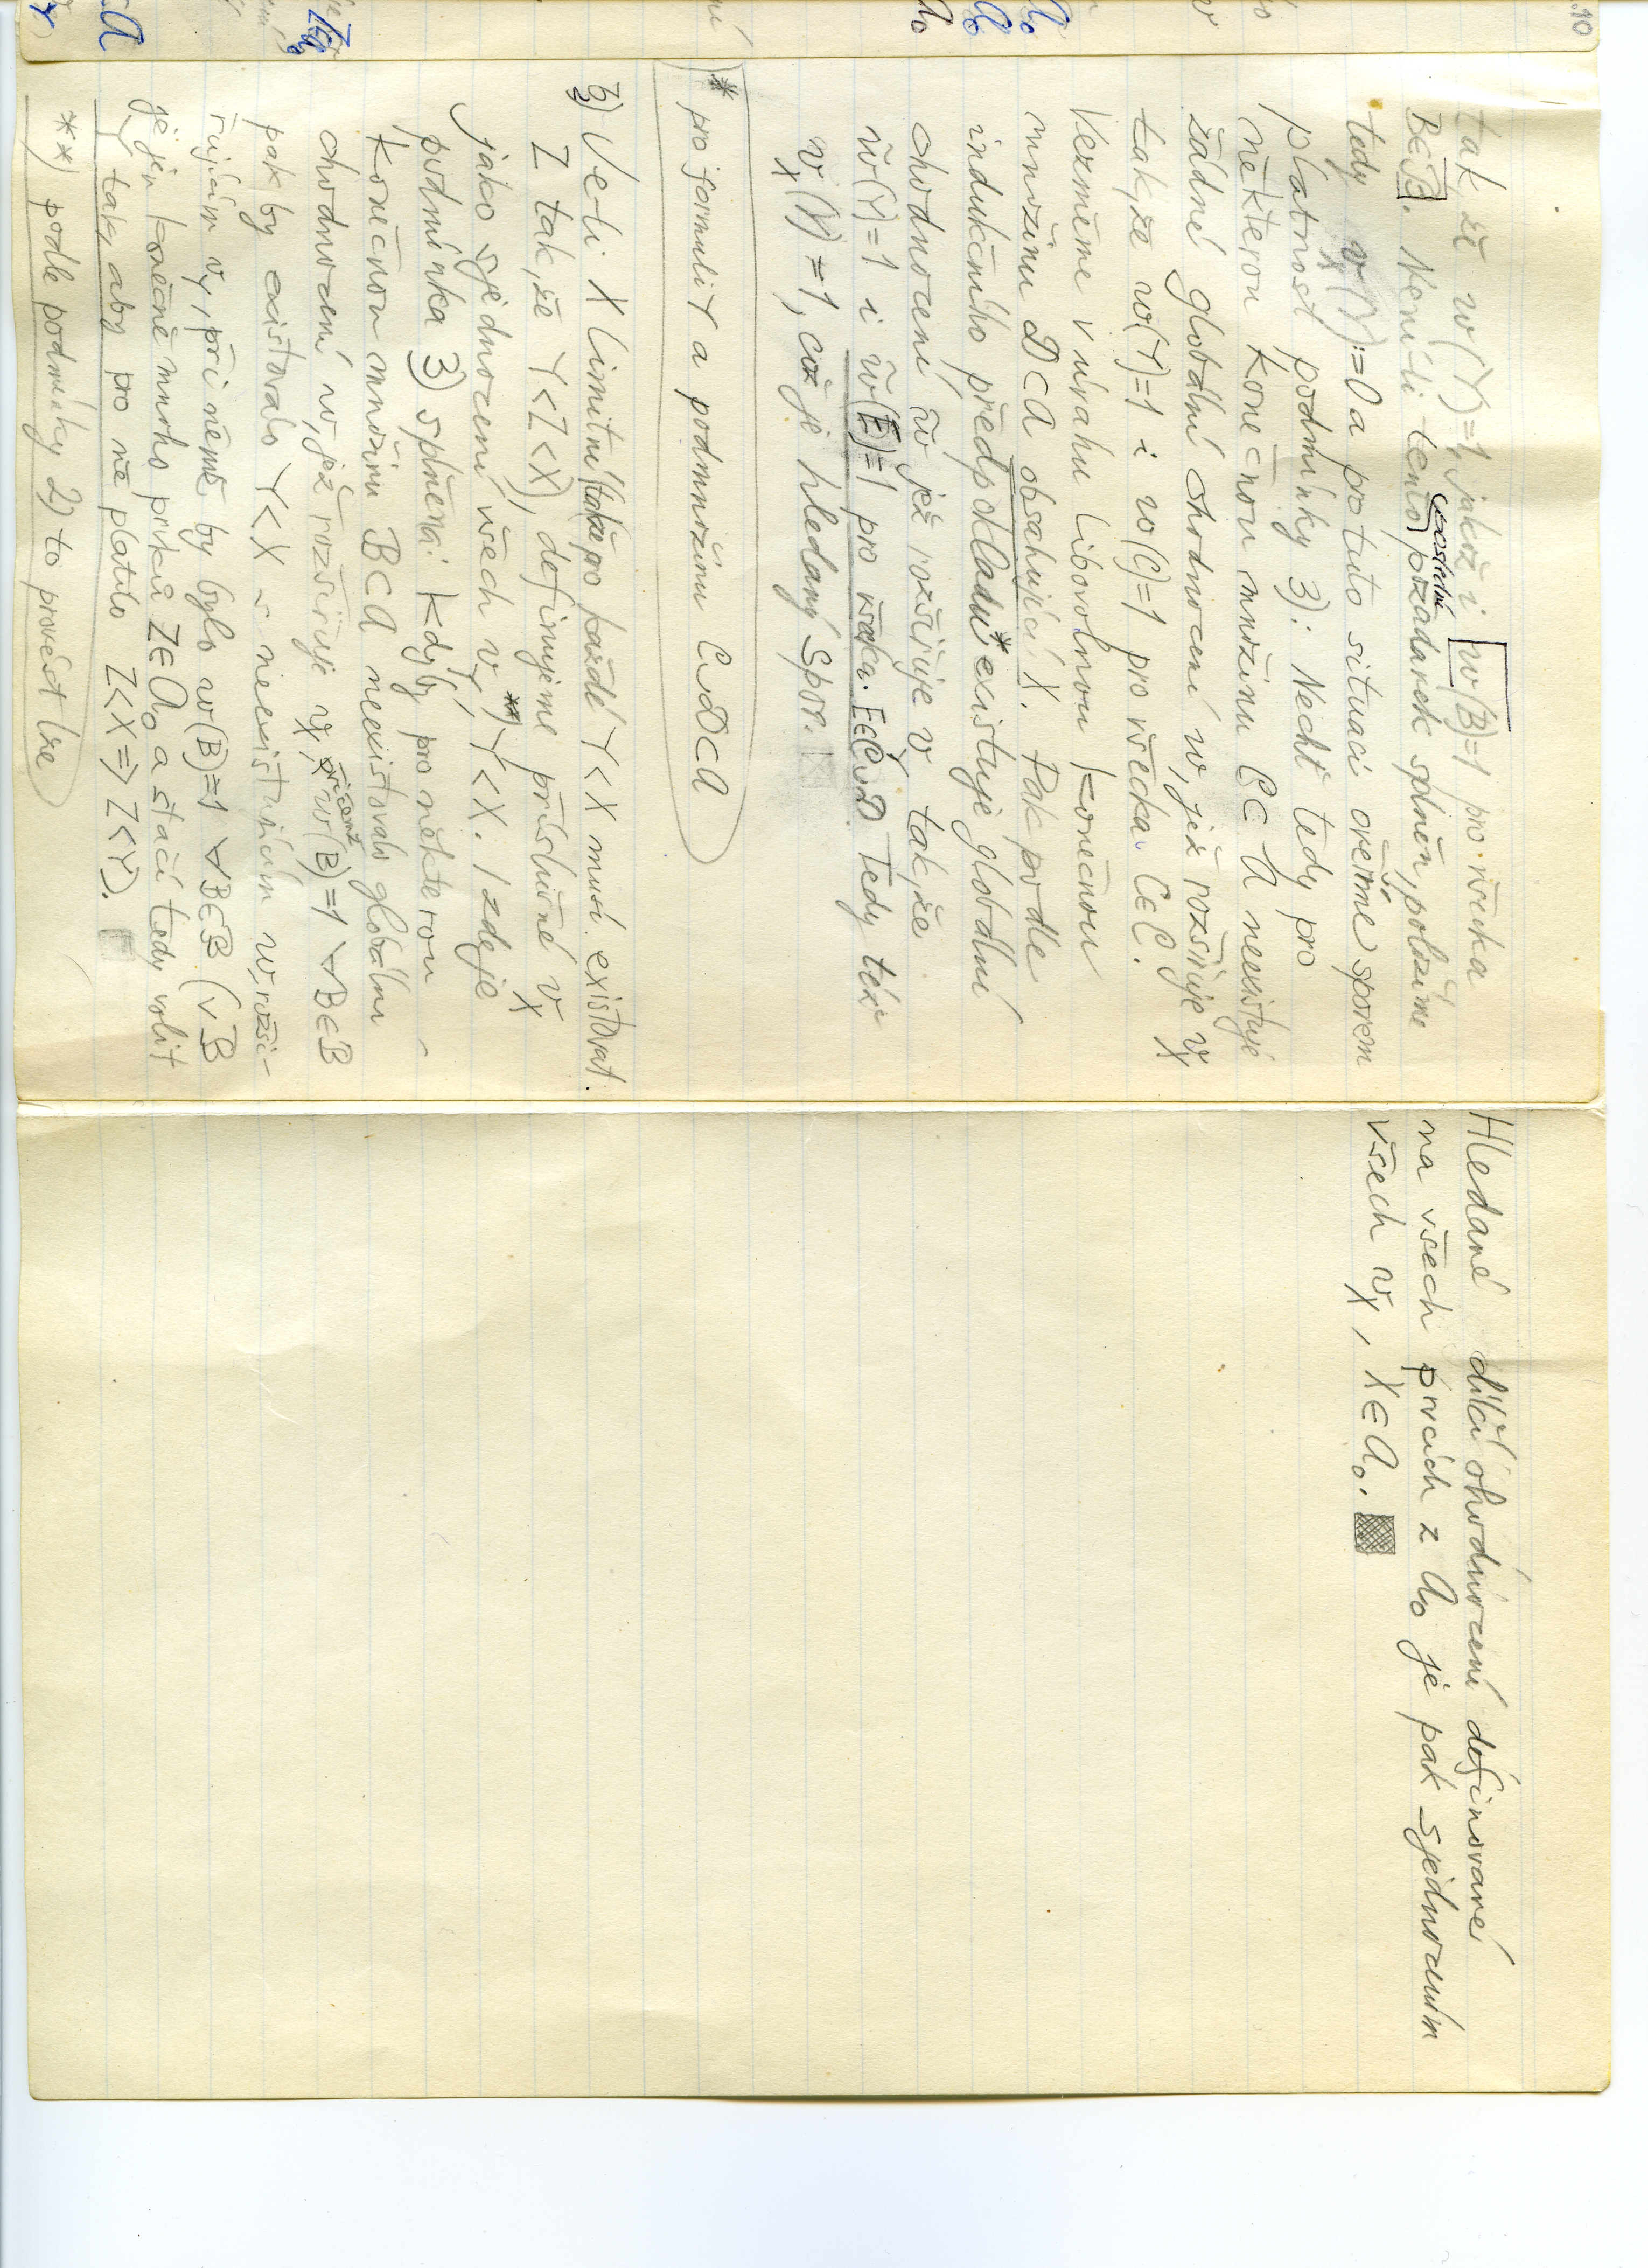 .10
tak, že w(Y)=1, jakož i w(B)=1 pro všecka
B∈ℬ. Není-li tento poslední požadavek splněn, položíme
tedy v_X(Y):=0 a pro tuto situaci ověříme sporem
platnost podmínky 3): Nechť tedy pro
některou konečnou množinu C⊂A neexistuje
žádné globální ohodnocení w, jež rozšiřuje v_X
tak, že w(Y)=1 i w(C)=1 pro všecka C∈C.
Vezměme v úvahu libovolnou konečnou
množinu D⊂A obsahující X. Pak podle
indukčního předpokladu* existuje globální
ohodnocení w̃ jež rozšiřuje v_Y tak, že
w̃(Y)=1 i w̃(E)=1 pro všecka E∈C∪D. Tedy též
v_X(Y)=1, což je hledaný spor.
* pro formuli Y a podmnožinu C∪D⊂A
b) Je-li X limitní (takže pro každé Y<X musí existovat
Z tak, že Y<Z<X), definujeme příslušné v_X
jako sjednocení všech v_Y,**) Y<X. I zde je
podmínka 3) splněná: Kdyby pro některou
konečnou množinu B⊂A neexistovalo globální
ohodnocení w, jež rozšiřuje v_X, přičemž w(B)=1 ∀B∈ℬ
pak by existovalo Y<X s neexistujícím w, rozši-
řujícím v_Y, při němž by bylo w(B)=1 ∀B∈ℬ (v ℬ
je jen konečně mnoho prvků Z∈A₀ a stačí tedy volit
Y tak, aby pro ně platilo Z<X => Z<Y).
**) podle podmínky 2) to provést lze
Hledané dílčí ohodnocení definované
na všech prvcích z A₀ je pak sjednocením
všech v_X, X∈A₀.